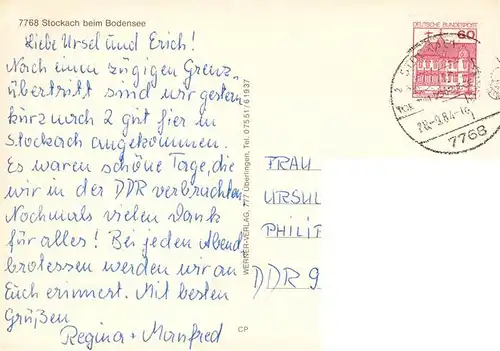 7768 Stockach beim Bodensee
Liebe Ursel und Erich!
Nach einem zügigen Grenz-
übertritt sind wir gestern
kurz nach 2 gut hier in
Stockach angekommen.
Es waren schöne Tage, die
wir in der DDR verbrachten.
Nochmals vielen Dank
für alles! Bei jedem Abend
brotessen werden wir an
Euch erinnert. Mit besten
Grüßen
Regina + Manfred
WERNER-VERLAG, 777 Überlingen, Tel. 07551/61937
CP
DEUTSCHE BUNDESPOST
60
7768
FRAU
URSUL
PHILIP
DDR 9